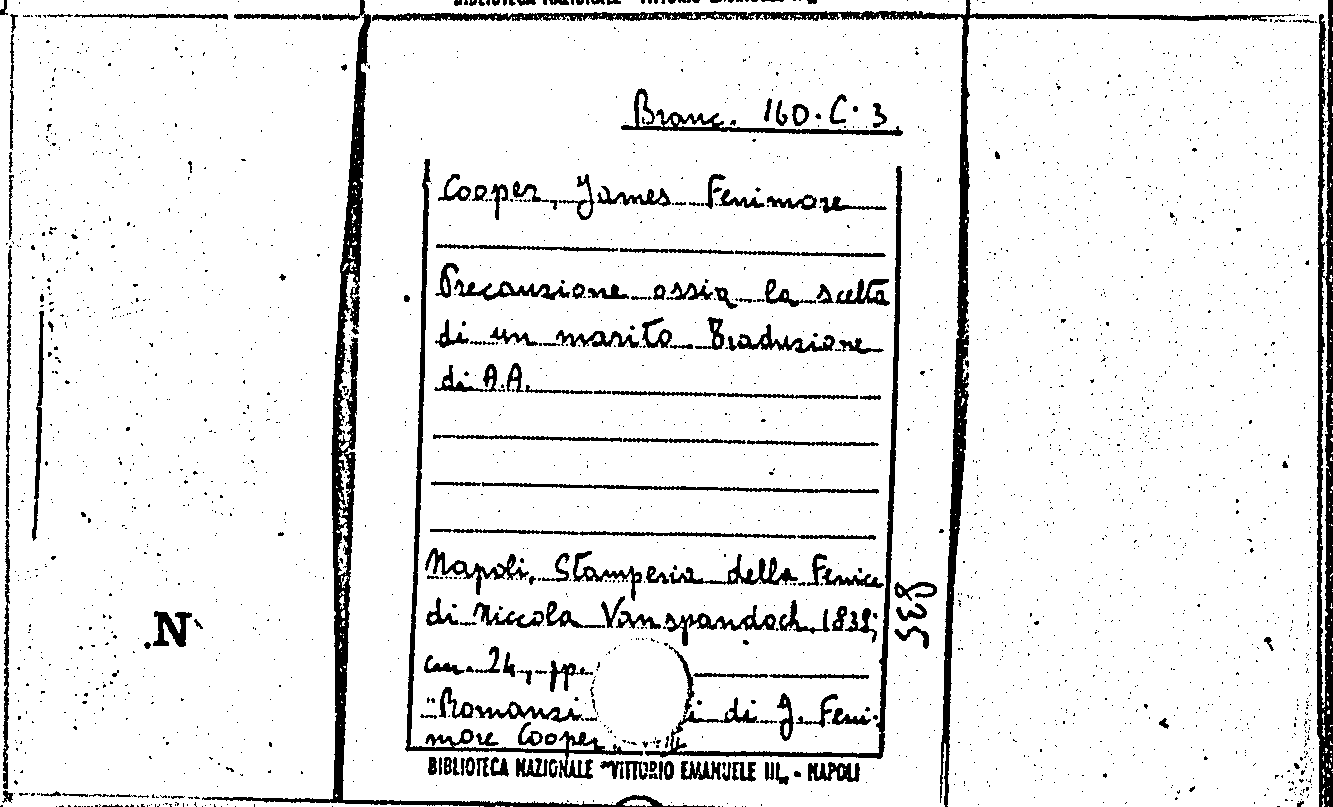 BIBLIOTECA NAZIONALE "VITTORIO EMANUELE III„
Branc. 160.C.3
Cooper, James Fenimore
Precauzione ossia la scelta
di un marito. Traduzione
di A.A.
Napoli, Stamperia della Fenice
di Niccola Vanspandoch, 1838;
cm. 24, pp.
"Romanzi
i di J. Feni-
more Cooper
BIBLIOTECA NAZIONALE "VITTORIO EMANUELE III„ - NAPOLI
835
N